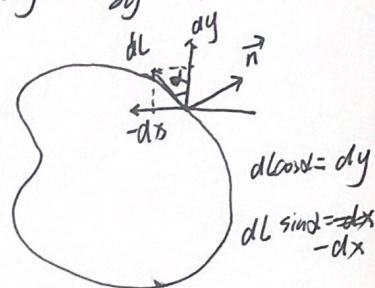 dL
dy
n⃗
α
-dx
dL cosα = dy
dL sinα =
-dx